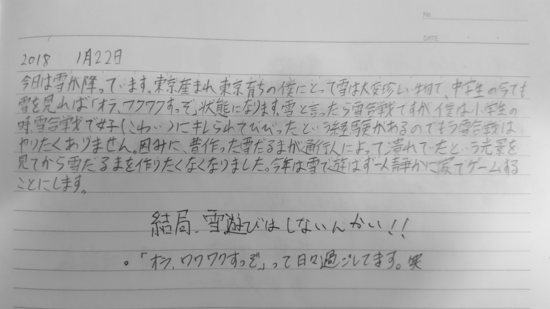 NO.
DATE
2018 1月22日
今日は雪が降っています。東京産まれ東京育ちの僕にとって雪は大変珍しい物で、中学生の今でも
雪を見れば「オラ、ワクワクすっぞ」状態になります。雪と言ったら雪合戦ですが、僕は小学生の
時雪合戦で女子(こわい)にキレられて泣かったという経験があるのでもう雪合戦は
やりたくありません。因みに、昔作った雪だるまが通行人によって潰れてたという光景を
見てから雪だるまを作りたくなくなりました。今年は雪で遊ばず一人静かに家でゲームする
ことにします。
結局、雪遊びはしないんかい!!
・「オラ、ワクワクすっぞ」って日々過ごしてます。笑